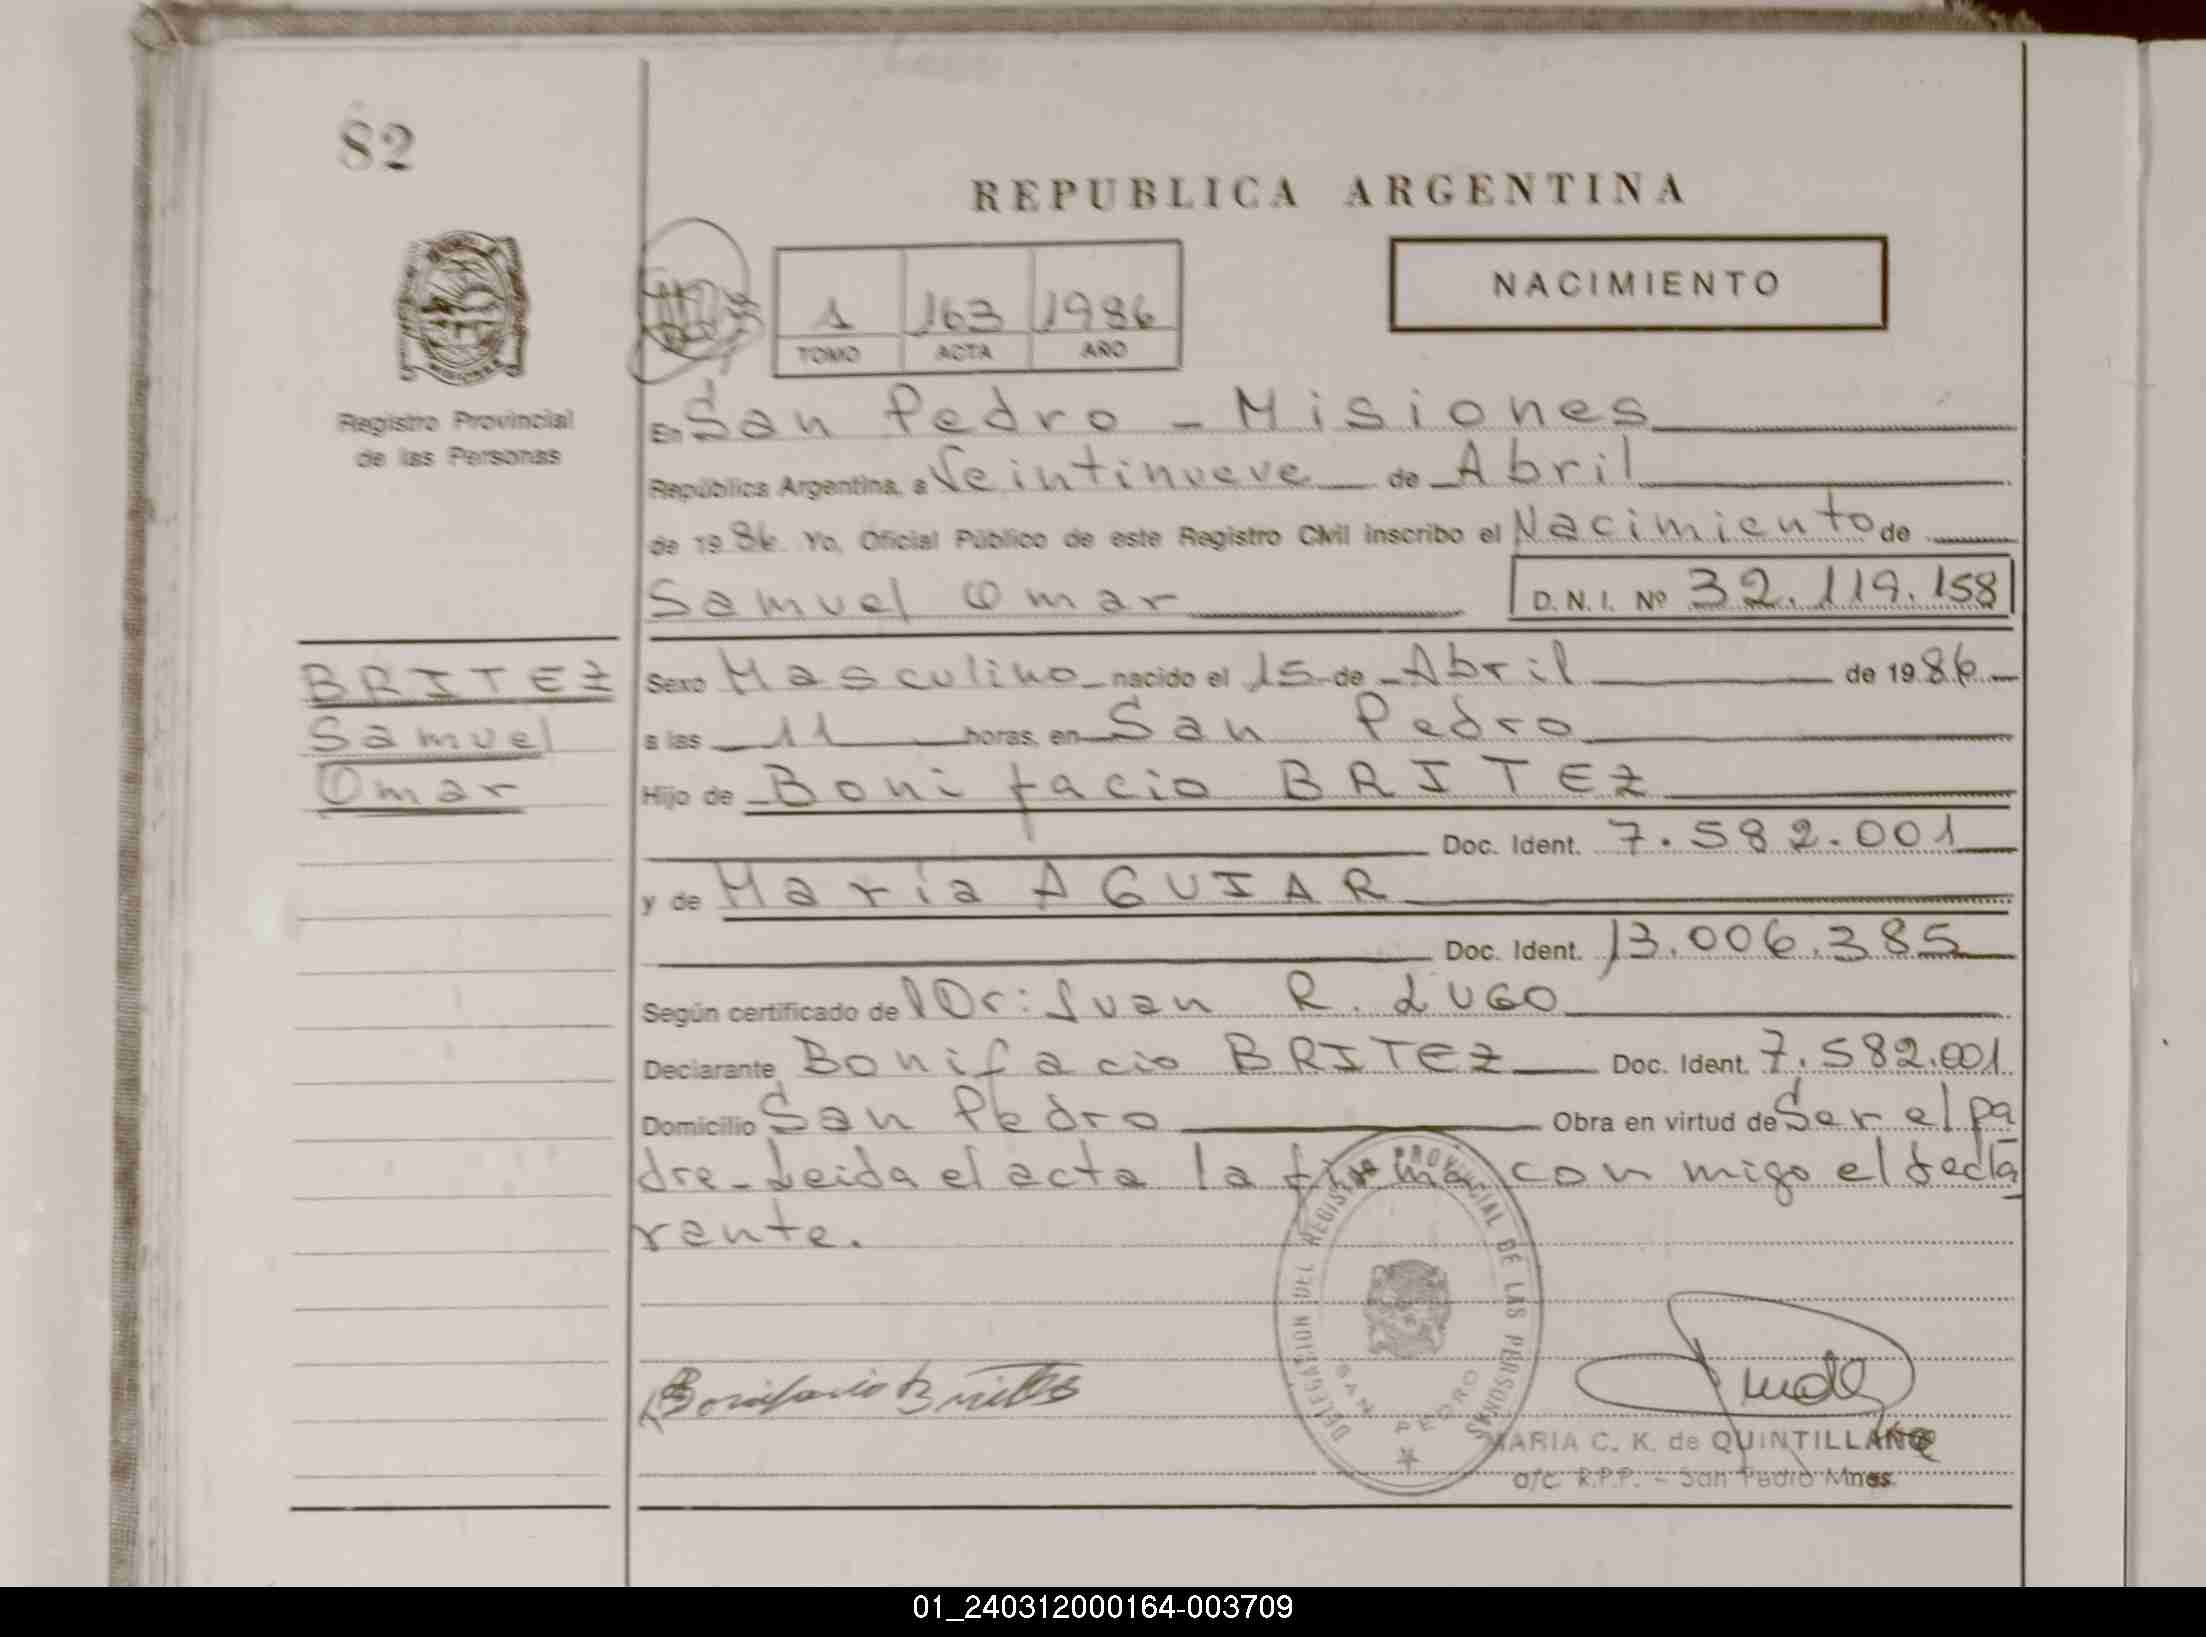 82
REPUBLICA ARGENTINA
NACIMIENTO
1 163 1986
TOMO ACTA AÑO
Registro Provincial
de las Personas
En San Pedro - Misiones
República Argentina, a Veintinueve de Abril
de 1986. Yo, Oficial Público de este Registro Civil inscribo el Nacimiento de
Samuel Omar D.N.I. Nº 32.119.158
BRITEZ
Samuel
Omar
Sexo Masculino nacido el 15 de Abril de 1986
a las 11 horas, en San Pedro
Hijo de Bonifacio BRITEZ
Doc. Ident. 7.582.001
y de María AGUIAR
Doc. Ident. 13.006.385
Según certificado de Dr: Juan R. LUGO
Declarante Bonifacio BRITEZ Doc. Ident. 7.582.001
Domicilio San Pedro Obra en virtud de Ser el pa
dre - Leida el acta la firma con migo el decla
rante.
DELEGACION DEL REGISTRO PROVINCIAL DE LAS PERSONAS
SAN PEDRO
Bonifacio Britez
MARIA C. K. de QUINTILLANO
a/c R.P.P. - San Pedro Mnes.
01_240312000164-003709